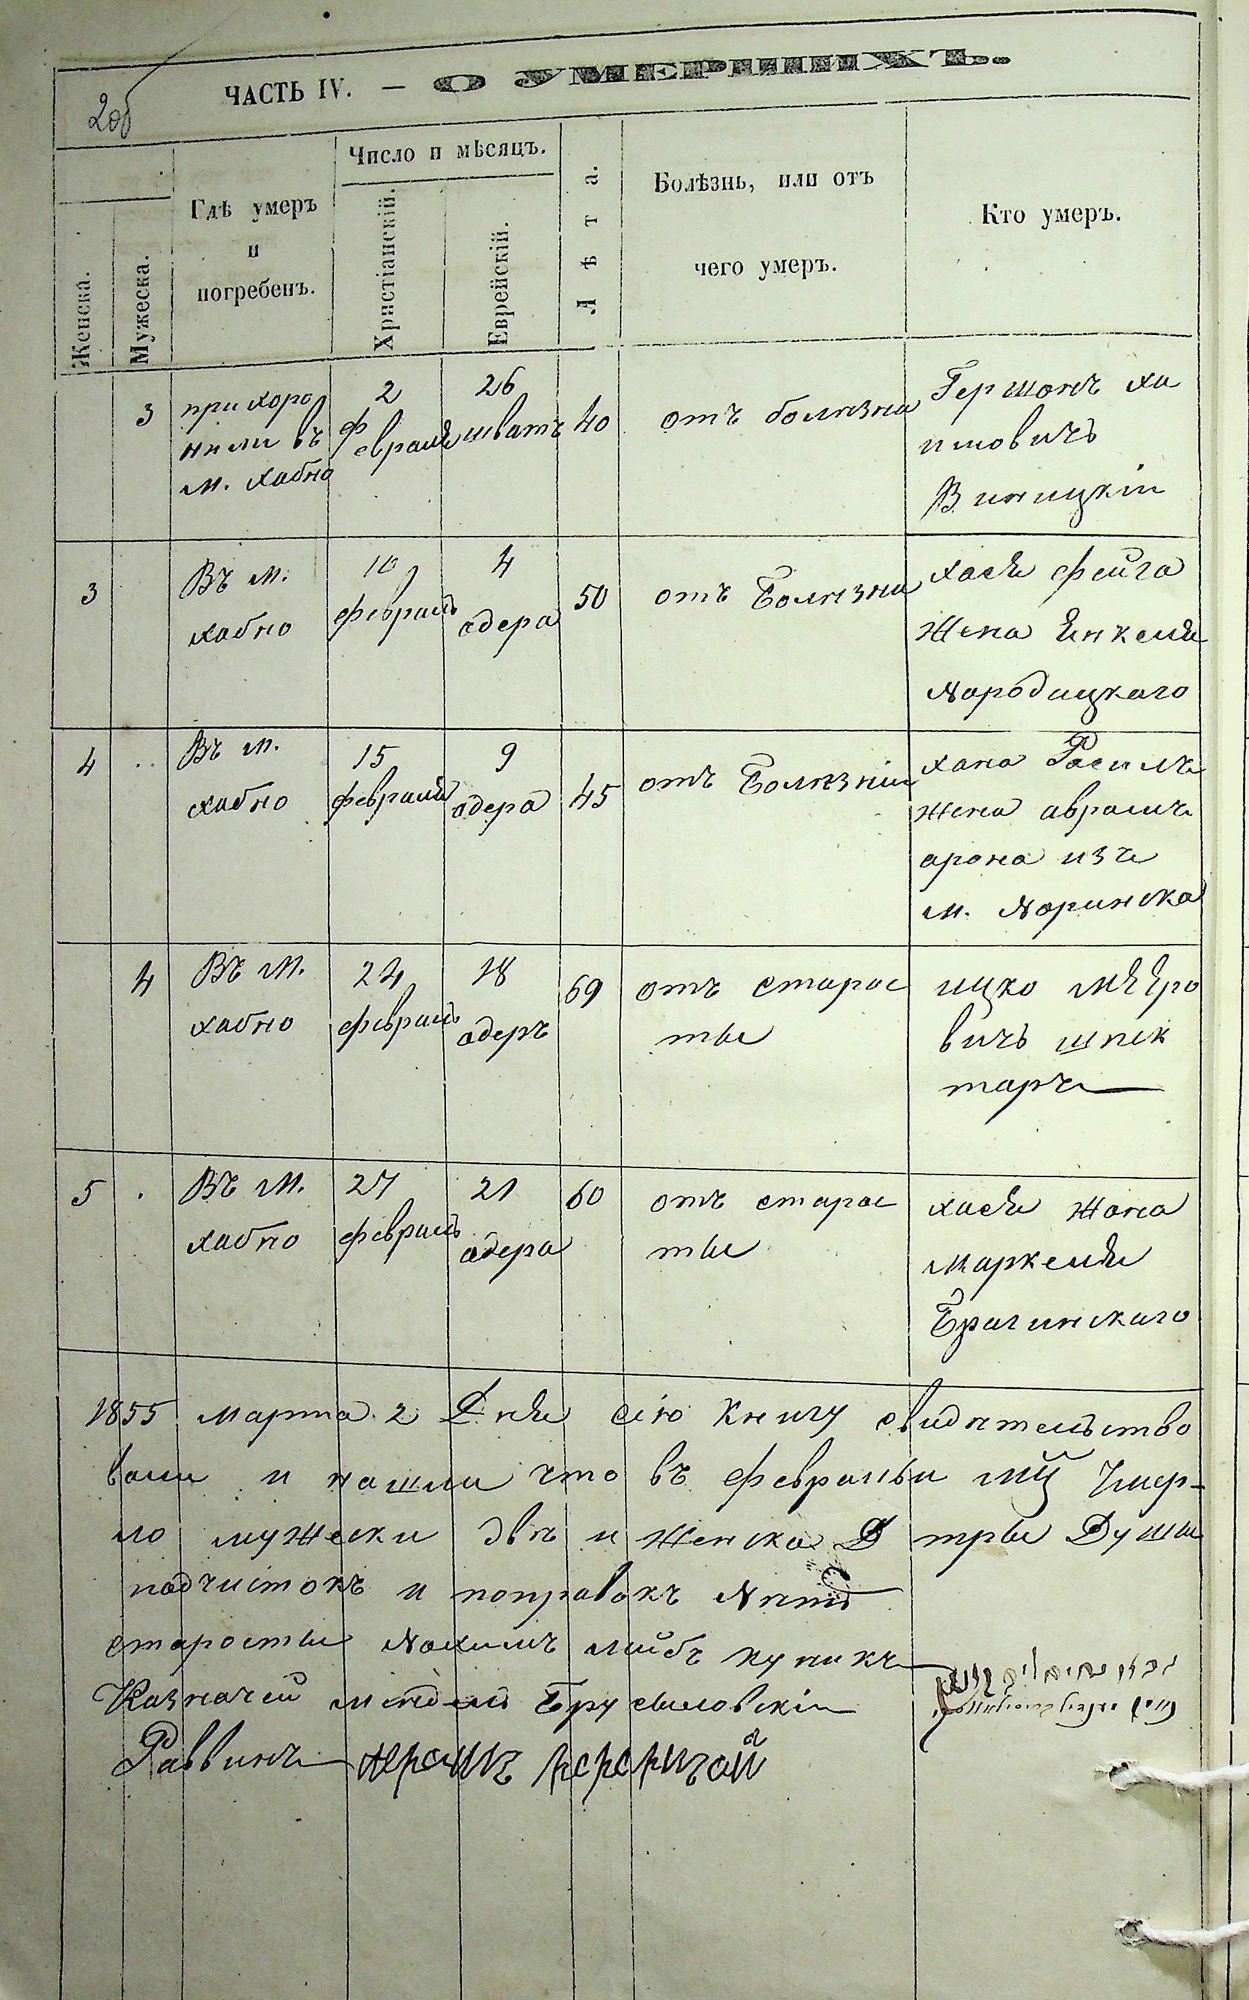 2об
ЧАСТЬ IV. — О УМЕРШИХЪ.
Женска.
Мужеска.
Гдѣ умеръ
и
погребенъ.
Число и мѣсяцъ.
Христіанскій.
Еврейскій.
Лѣта.
Болѣзнь, или отъ
чего умеръ.
Кто умеръ.
3
прихоро
нили въ
м. хабно
2
февраля
26
шватъ
40
отъ болезни
Гершонъ ха
имовичъ
Виницкіи
3
Въ м.
хабно
10
февраль
4
адера
50
отъ Болѣзни
хася фейга
жена Янкеля
Народицкаго
4
Въ м.
хабно
15
февраля
9
адера
45
отъ Болѣзніи
хана Расилъ
жена аврамъ
арона изъ
м. Норинска
4
Въ м.
хабно
24
февраль
18
адеръ
69
отъ старос
ты
ицко
вичъ шпек
таръ
5
Въ м.
хабно
27
февраль
21
адера
60
отъ старос
ты
хася жона
маркеля
Брагинскаго
1855 марта 2 Дня сію книгу свидѣтельство
вали и нашли что въ февральи мц Умер-
ло мужески двѣ и женска три Души
подчистокъ и поправокъ Нѣтъ
старосты Нохимъ лейбъ купикъ
Казначей мендель Брусиловскіи
Раввинъ